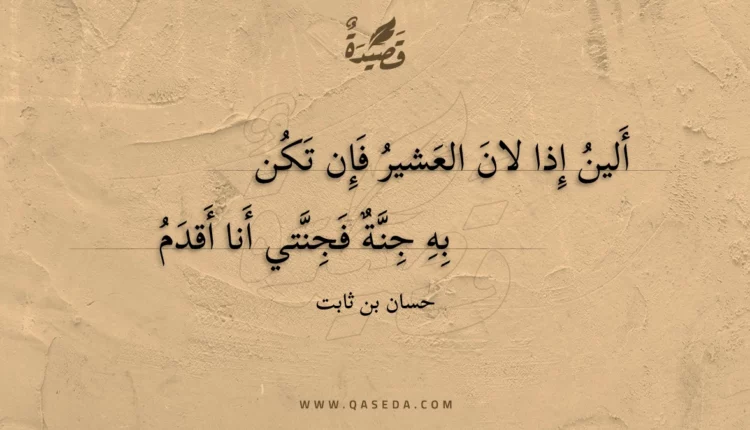 قَصِيدَةٌ
أَلينُ إِذا لانَ العَشيرُ فَإِن تَكُن
بِهِ جِنَّةٌ فَجِنَّتي أَنا أَقدَمُ
حسان بن ثابت
WWW.QASEDA.COM